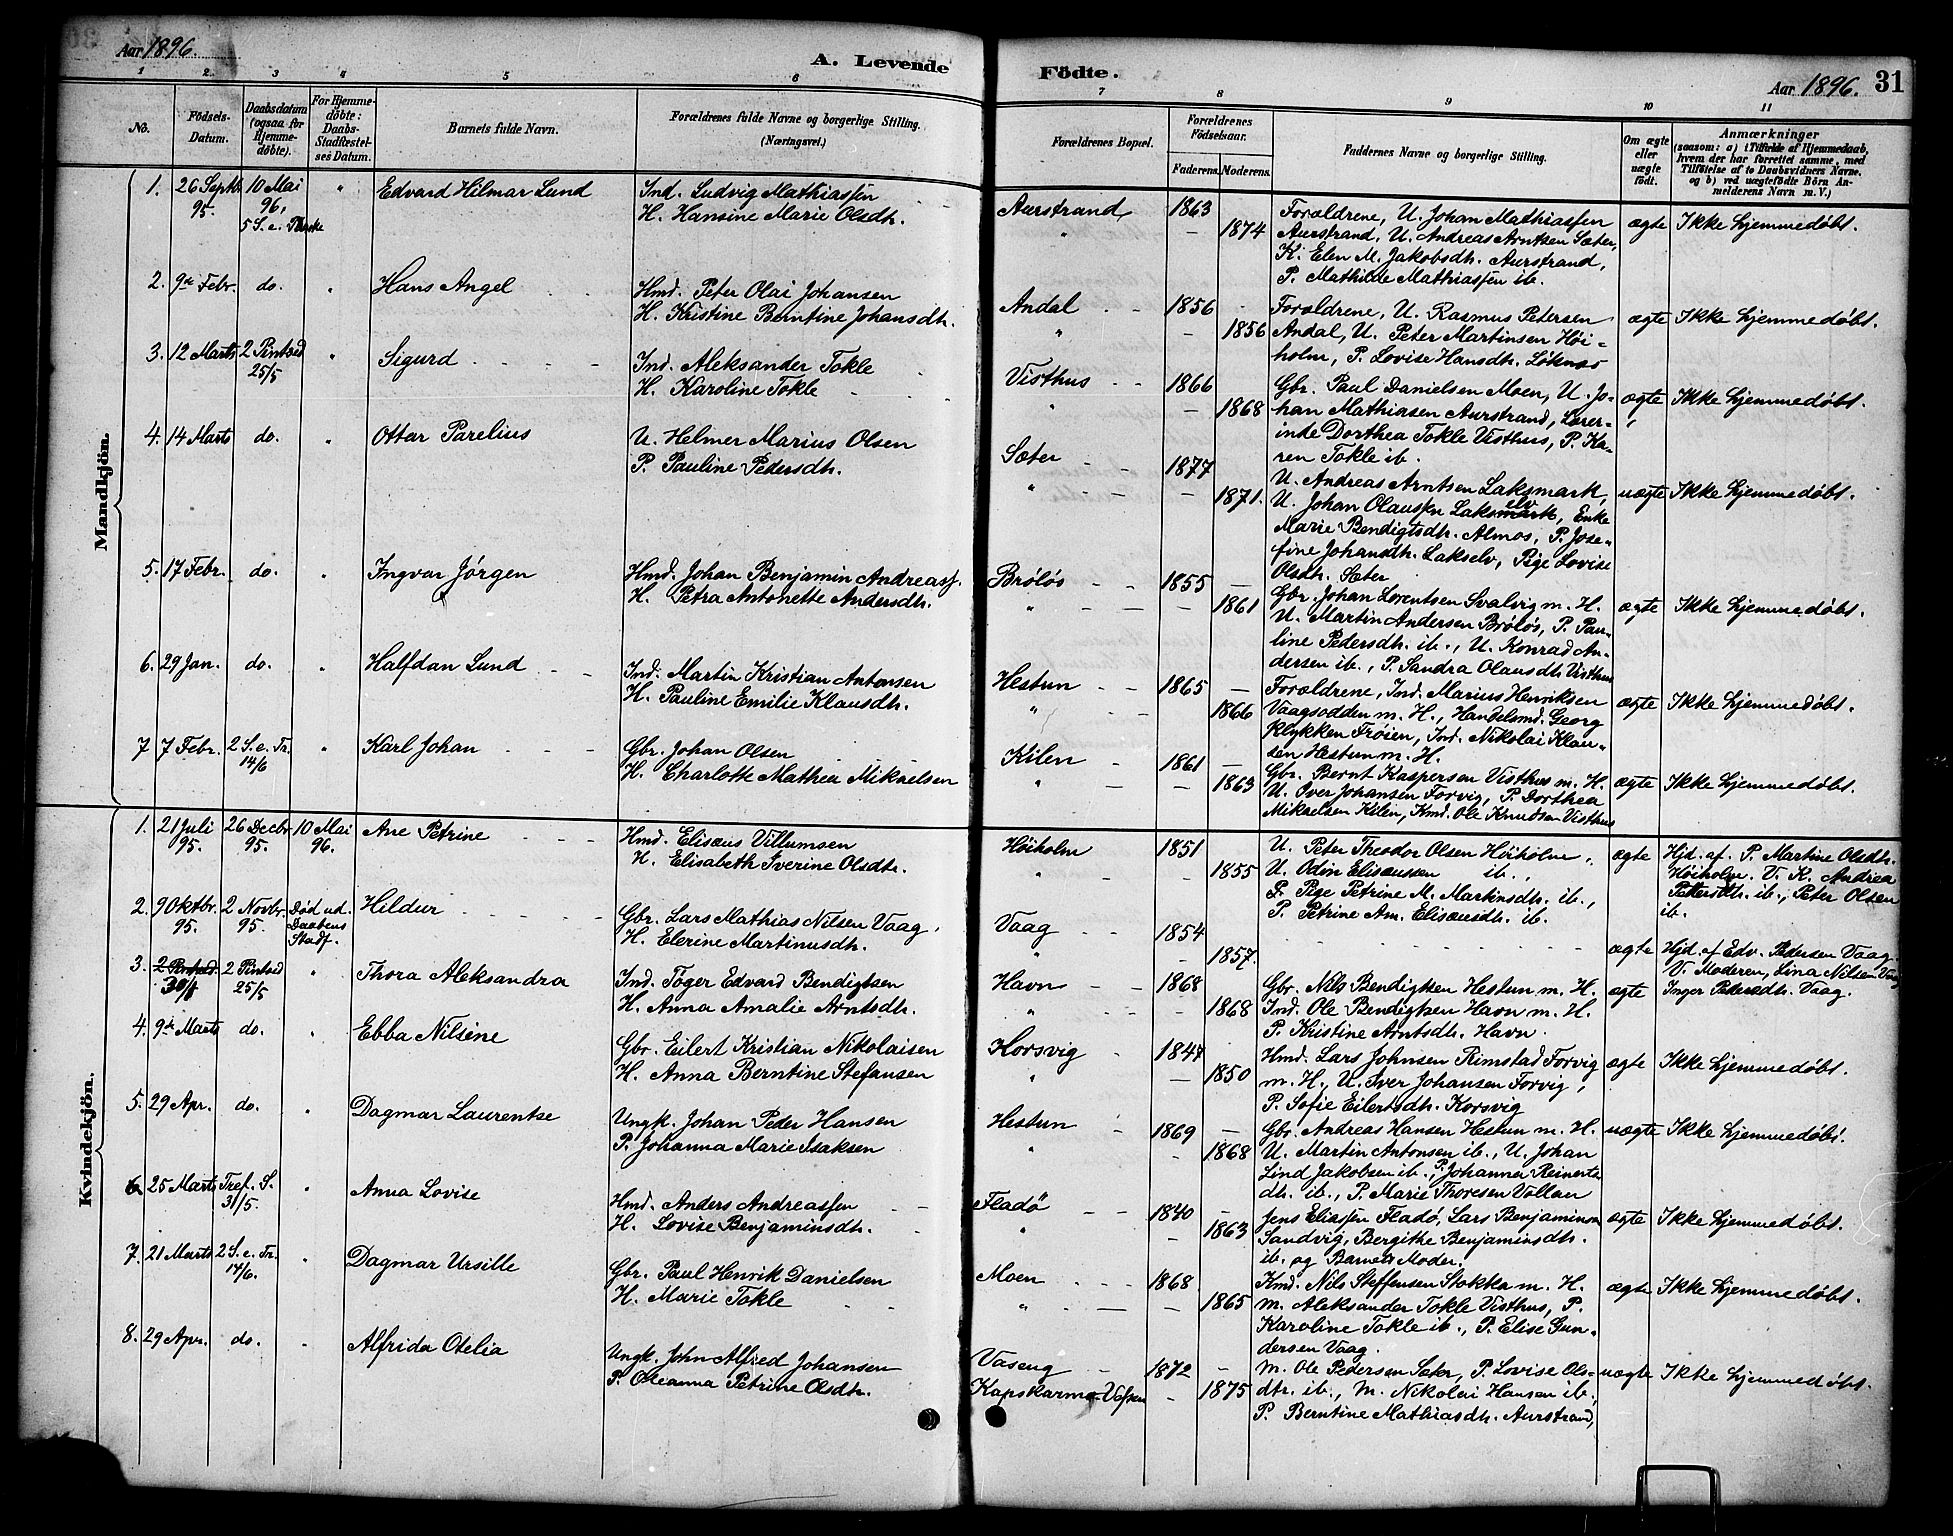 Aar 1896.
A. Levende
Födte.
Aar 1896. 31
1 2. 3 4 5 6 7 8 9 10 11
No.
Födsels-Datum.
Daabsdatum (ogsaa for Hjemme-döbte).
For Hjemme-döbte: Daabs-Stadfæstel-ses Datum.
Barnets fulde Navn.
Forældrenes fulde Navne og borgerlige Stilling. (Næringsvei.)
Forældrenes Bopæl.
Forældrenes Födselsaar.
Faderens. Moderens.
Faddernes Navne og borgerlige Stilling.
Om ægte eller uægte födt.
Anmærkninger (saasom: a) i Tilfælde af Hjemmedaab, hvem der har forrettet samme, med Tilföielse af to Daabsvidners Navne. og b) ved uægtefödte Börn An-melderens Navn m. V.)
Mandkjön.
1. 26 Septbr 95. 10 Mai 96, 5 S. e. Paaske " Edvard Hilmar Lund
Ind. Ludvig Mathiassen
H. Hansine Marie Olsdtr.
Aurstrand 1863
" — 1874
Forældrene, U. Johan Mathiassen
Aurstrand, U. Andreas Arntsen Sæter,
K. Elen M. Jakobsdtr. Aurstrand,
P. Mathilde Mathiassen ib.
ægte Ikke hjemmedøbt.
2. 9de Febr. do. " Hans Angel
Hmd. Peter Olai Johansen
H. Kristine Berntine Johansdtr.
Andal 1856
" — 1856
Forældrene, U. Rasmus Petersen
Andal, U. Peter Martinsen Höi-
holm, P. Lovise Hansdtr. Løknæs
ægte Ikke hjemmedøbt.
3. 12 Marts 2 Pintsed 25/5 " Sigurd
Ind. Aleksander Tokle
H. Karoline Tokle
Visthus 1866
" — 1868
Gbr. Paul Danielsen Moen, U. Jo-
han Mathiasen Aurstrand, Lærer-
inde Dorthea Tokle Visthus, P. Ka-
ren Tokle ib.
ægte Ikke hjemmedøbt.
4. 14 Marts do. " Ottar Parelius
U. Helmer Marius Olsen
P. Pauline Pedersdtr.
Sæter 1877
" — 1871.
U. Andreas Arntsen Laksmark,
U. Johan Olaussen Laksmark elv, Enke
Marie Bendigtsdtr. Almos, P. Jose-
fine Johansdtr. Lakselv, Pige Lovise
Olsdtr. Sæter
uægte Ikke hjemmedøbt.
5. 17 Febr. do. " Ingvar Jörgen
Hmd. Johan Benjamin Andreass.
H. Petra Antonette Andersdtr.
Brøløs 1855 —
" — 1861
Gbr. Johan Lorentsen Svalvig m. H.
U. Martin Andersen Brøløs, P. Pau-
line Pedersdtr. ib., U. Konrad An-
dersen ib., P. Sandra Olausdtr Visthus
ægte Ikke hjemmedøbt.
6. 29 Jan. do. " Halfdan Lund
Ind. Martin Kristian Antonsen
H. Pauline Emilie Klausdtr.
Hestun 1865 —
" 1866
Forældrene, Ind. Marius Henriksen
Vaagsodden m. H., Handelsmd. Georg
Klykken Frøien, Ind. Nikolai Klau-
sen Hestun m. H.
ægte Ikke hjemmedøbt.
7 7 Febr. 2 S. e. Tr. 14/6 " Karl Johan
Gbr. Johan Olsen
H. Charlotte Mathea Mikaelsen
Kilen 1861 —
" — 1863
Gbr. Bernt Kaspersen Visthus m. H.
U. Over Johansen Forvig, P. Dorthea
Mikaelsen Kilen, Kmd. Ole Knudsen Visthus
ægte Ikke hjemmedøbt.
Kvindekjön.
1. 21 Juli 95. 26 Decbr 95. 10 Mai 96. Ane Petrine
Hmd. Elisæus Villumsen
H. Elisabeth Iverine Olsdtr.
Høiholm 1851
" 1855
U. Peter Theodor Olsen Høiholm,
U. Odin Elisæussen ib.,
P. Pige Petrine M. Martinsdtr. ib.,
P. Petrine Am. Elisæusdtr. ib.
ægte Hjd. af. P. Martine Olsdtr.
Høiholm. V. K. Andrea
Pettersdtr. ib., Peter Olsen
ib.
2. 9 Oktbr. 95. 2 Novbr. 95. Død ud. Daabens Stadf. Hildur
Gbr. Lars Mathias Nilsen Vaag,
H. Elerine Martinusdtr.
Vaag 1854
" — 1857.
ægte Hjd. af Edv. Pedersen Vaag
V. Moderen, Lina Nilsen Vaag
Inger Petersdtr. Vaag.
3. 2 Pintsed. 30/1 2 Pintsed 25/5 " Thora Aleksandra
Ind. Töger Edvard Bendigtsen
H. Anna Amalie Arntsdtr.
Havn 1868
" — 1868
Gbr. Nils Bendigtsen Hestun m. H.
Ind. Ole Bendigtsen Havn m. H.
P. Kristine Arntsdtr. Havn.
ægte
4. 9de Marts do. " Ebba Nilsine
Gbr. Eilert Kristian Nikolaisen
H. Anna Berntine Stefansen
Horsvig 1847
" — 1850
Hmd. Lars Johnsen Rimstad Forvig
m. H., U. Iver Johansen Forvig,
P. Sofie Eilertsdtr. Korsvig
ægte Ikke hjemmedøbt.
5. 29 Apr. do. " Dagmar Laurentze
Ungk. Johan Peder Hansen
P. Johanna Marie Isaksen
Hestun 1869 —
" — 1868
Gbr. Andreas Hansen Hestun m. H.
U. Martin Antonsen ib., U. Johan
Lind Jakobsen ib., P. Johanna Reinerts
dtr. ib., P. Marie Thoresen Vollan
uægte Ikke hjemmedøbt.
6 25 Marts Tref. S. 31/5. " Anna Lovise
Hmd. Anders Andreassen
H. Lovise Benjaminsdtr.
Fladö 1840 —
" — 1863
Jens Eliassen Fladö, Lars Benjaminsen
Sandvig, Bergithe Benjaminsdtr.
ib. og Barnets Moder.
ægte Ikke hjemmedøbt.
7. 21 Marts 2 S. e. Tr. 14/6. " Dagmar Ursille
Gbr. Paul Henrik Danielsen
H. Marie Tokle
Moen 1868.
" — 1865
Kmd. Nils Steffensen Stokka m. H.
m. Aleksander Tokle Visthus, P.
Karoline Tokle ib., P. Elise Gun-
dersen Vaag.
ægte Ikke hjemmedøbt.
8. 29 Apr. do. " Alfrida Otelia
Ungk. John Alfred Johansen
P. Oleanna Petrine Olsdtr.
Vaseng 1872 —
Kapskarmo Vefsen — 1875
m. Ole Pedersen Sæter, P. Lovise Ols-
dtr. ib., m. Nikolai Hansen ib.,
P. Berntine Mathiasdtr. Aurstrand,
uægte Ikke hjemmedøbt.